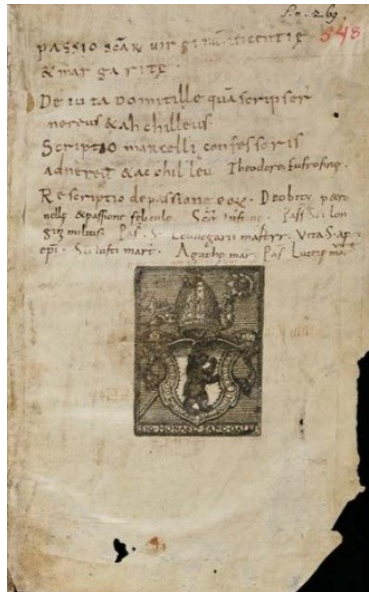 S. n. 269.
548
passio scar uirginum dicentie
& margarite.
De uita Domitille quā scripser
nereus & ahchilleus
Scriptio marcelli confessoris
adnereū & acchilleū Theodore Eufrosine.
Rescriptio de passione eor. Deobitu petro
nelle & passione felicule. Pass S. lon
gini militis. Pas. S. Leudegarii martyr. Vita S.
epi. S. iusti mart. Agathe mar. Pas Lucie mar
SIG. MONAST. SANC. GALLI